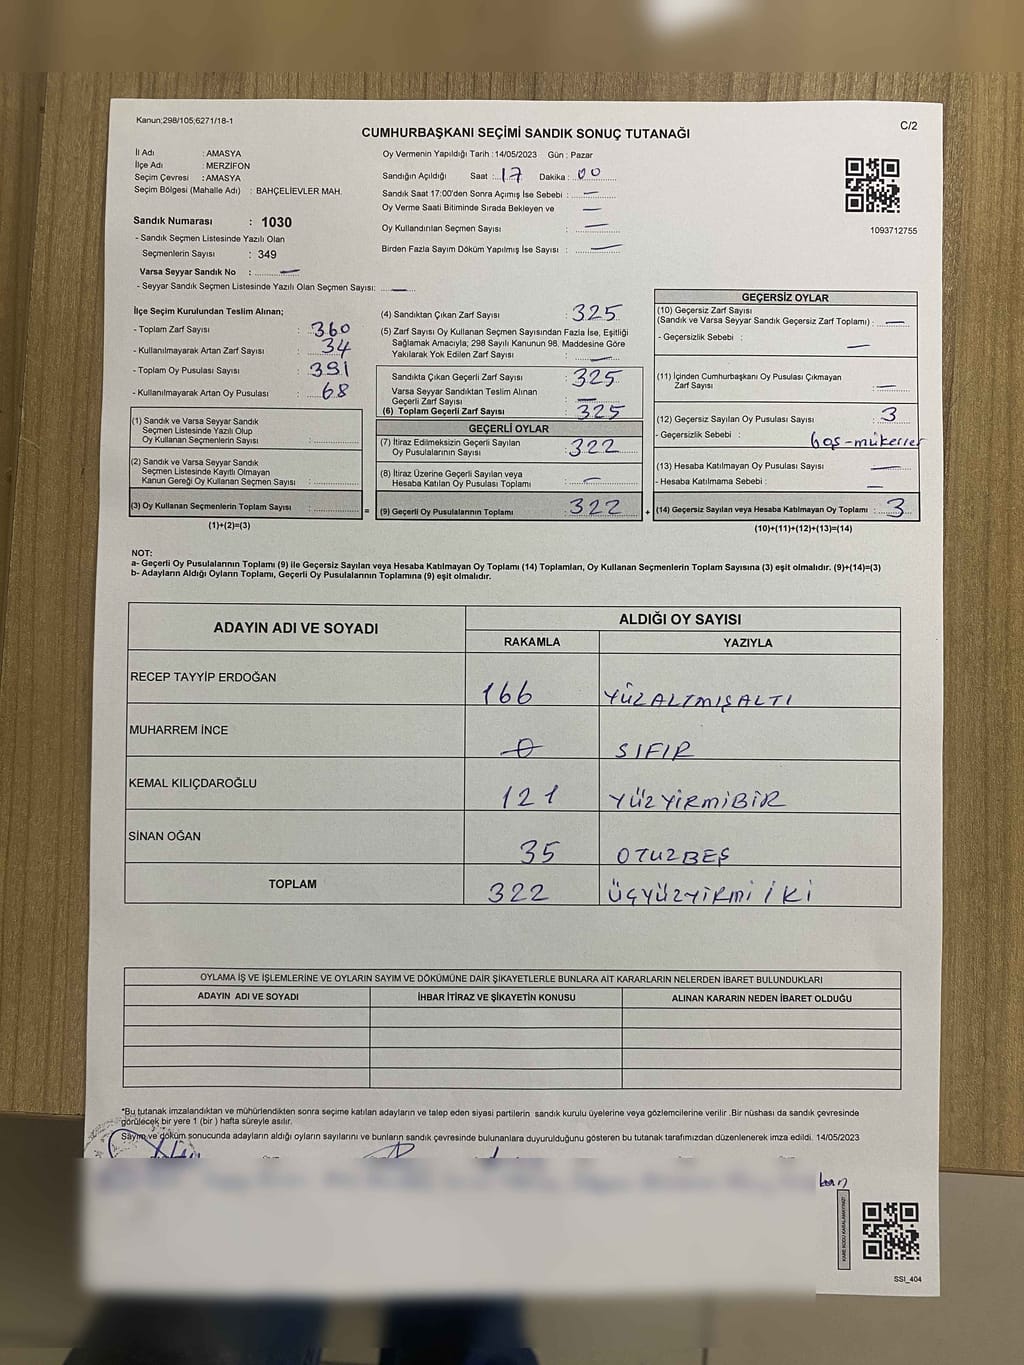 Kanun;298/105;6271/18-1
C/2
CUMHURBAŞKANI SEÇİMİ SANDIK SONUÇ TUTANAĞI
İl Adı : AMASYA
İlçe Adı : MERZİFON
Seçim Çevresi : AMASYA
Seçim Bölgesi (Mahalle Adı) : BAHÇELİEVLER MAH.
Sandık Numarası : 1030
- Sandık Seçmen Listesinde Yazılı Olan
Seçmenlerin Sayısı : 349
Varsa Seyyar Sandık No : —
- Seyyar Sandık Seçmen Listesinde Yazılı Olan Seçmen Sayısı: —
Oy Vermenin Yapıldığı Tarih : 14/05/2023 Gün : Pazar
Sandığın Açıldığı Saat : 17 Dakika : 00
Sandık Saat 17:00'den Sonra Açımış İse Sebebi : —
Oy Verme Saati Bitiminde Sırada Bekleyen ve —
Oy Kullandırılan Seçmen Sayısı : —
Birden Fazla Sayım Döküm Yapılmış İse Sayısı : —
1093712755
İlçe Seçim Kurulundan Teslim Alınan;
- Toplam Zarf Sayısı : 360
- Kullanılmayarak Artan Zarf Sayısı : 34
- Toplam Oy Pusulası Sayısı : 391
- Kullanılmayarak Artan Oy Pusulası : 68
(1) Sandık ve Varsa Seyyar Sandık
Seçmen Listesinde Yazılı Olup
Oy Kullanan Seçmenlerin Sayısı :
(2) Sandık ve Varsa Seyyar Sandık
Seçmen Listesinde Kayıtlı Olmayan
Kanun Gereği Oy Kullanan Seçmen Sayısı :
(3) Oy Kullanan Seçmenlerin Toplam Sayısı : =
(1)+(2)=(3)
(4) Sandıktan Çıkan Zarf Sayısı : 325
(5) Zarf Sayısı Oy Kullanan Seçmen Sayısından Fazla İse, Eşitliği
Sağlamak Amacıyla; 298 Sayılı Kanunun 98. Maddesine Göre
Yakılarak Yok Edilen Zarf Sayısı : —
Sandıkta Çıkan Geçerli Zarf Sayısı : 325
Varsa Seyyar Sandıktan Teslim Alınan
Geçerli Zarf Sayısı : —
(6) Toplam Geçerli Zarf Sayısı : 325
GEÇERLİ OYLAR
(7) İtiraz Edilmeksizin Geçerli Sayılan
Oy Pusulalarının Sayısı : 322
(8) İtiraz Üzerine Geçerli Sayılan veya
Hesaba Katılan Oy Pusulası Toplamı : —
(9) Geçerli Oy Pusulalarının Toplamı : 322 +
GEÇERSİZ OYLAR
(10) Geçersiz Zarf Sayısı
(Sandık ve Varsa Seyyar Sandık Geçersiz Zarf Toplamı) : —
- Geçersizlik Sebebi : —
(11) İçinden Cumhurbaşkanı Oy Pusulası Çıkmayan
Zarf Sayısı : —
(12) Geçersiz Sayılan Oy Pusulası Sayısı : 3
- Geçersizlik Sebebi : boş-mükerrer
(13) Hesaba Katılmayan Oy Pusulası Sayısı : —
- Hesaba Katılmama Sebebi : —
(14) Geçersiz Sayılan veya Hesaba Katılmayan Oy Toplamı : 3
(10)+(11)+(12)+(13)=(14)
NOT:
a- Geçerli Oy Pusulalarının Toplamı (9) ile Geçersiz Sayılan veya Hesaba Katılmayan Oy Toplamı (14) Toplamları, Oy Kullanan Seçmenlerin Toplam Sayısına (3) eşit olmalıdır. (9)+(14)=(3)
b- Adayların Aldığı Oyların Toplamı, Geçerli Oy Pusulalarının Toplamına (9) eşit olmalıdır.
ADAYIN ADI VE SOYADI ALDIĞI OY SAYISI
RAKAMLA YAZIYLA
RECEP TAYYİP ERDOĞAN 166 YÜZALTMIŞALTI
MUHARREM İNCE 0 SIFIR
KEMAL KILIÇDAROĞLU 121 YÜZYİRMİBİR
SİNAN OĞAN 35 OTUZBEŞ
TOPLAM 322 ÜÇYÜZYİRMİ İKİ
OYLAMA İŞ VE İŞLEMLERİNE VE OYLARIN SAYIM VE DÖKÜMÜNE DAİR ŞİKAYETLERLE BUNLARA AİT KARARLARIN NELERDEN İBARET BULUNDUKLARI
ADAYIN ADI VE SOYADI İHBAR İTİRAZ VE ŞİKAYETİN KONUSU ALINAN KARARIN NEDEN İBARET OLDUĞU
*Bu tutanak imzalandıktan ve mühürlendikten sonra seçime katılan adayların ve talep eden siyasi partilerin sandık kurulu üyelerine veya gözlemcilerine verilir .Bir nüshası da sandık çevresinde
görülecek bir yere 1 (bir ) hafta süreyle asılır.
Sayım ve döküm sonucunda adayların aldığı oyların sayılarını ve bunların sandık çevresinde bulunanlara duyurulduğunu gösteren bu tutanak tarafımızdan düzenlenerek imza edildi. 14/05/2023
KARE KODU KARALAMAYINIZ!
SSI_404